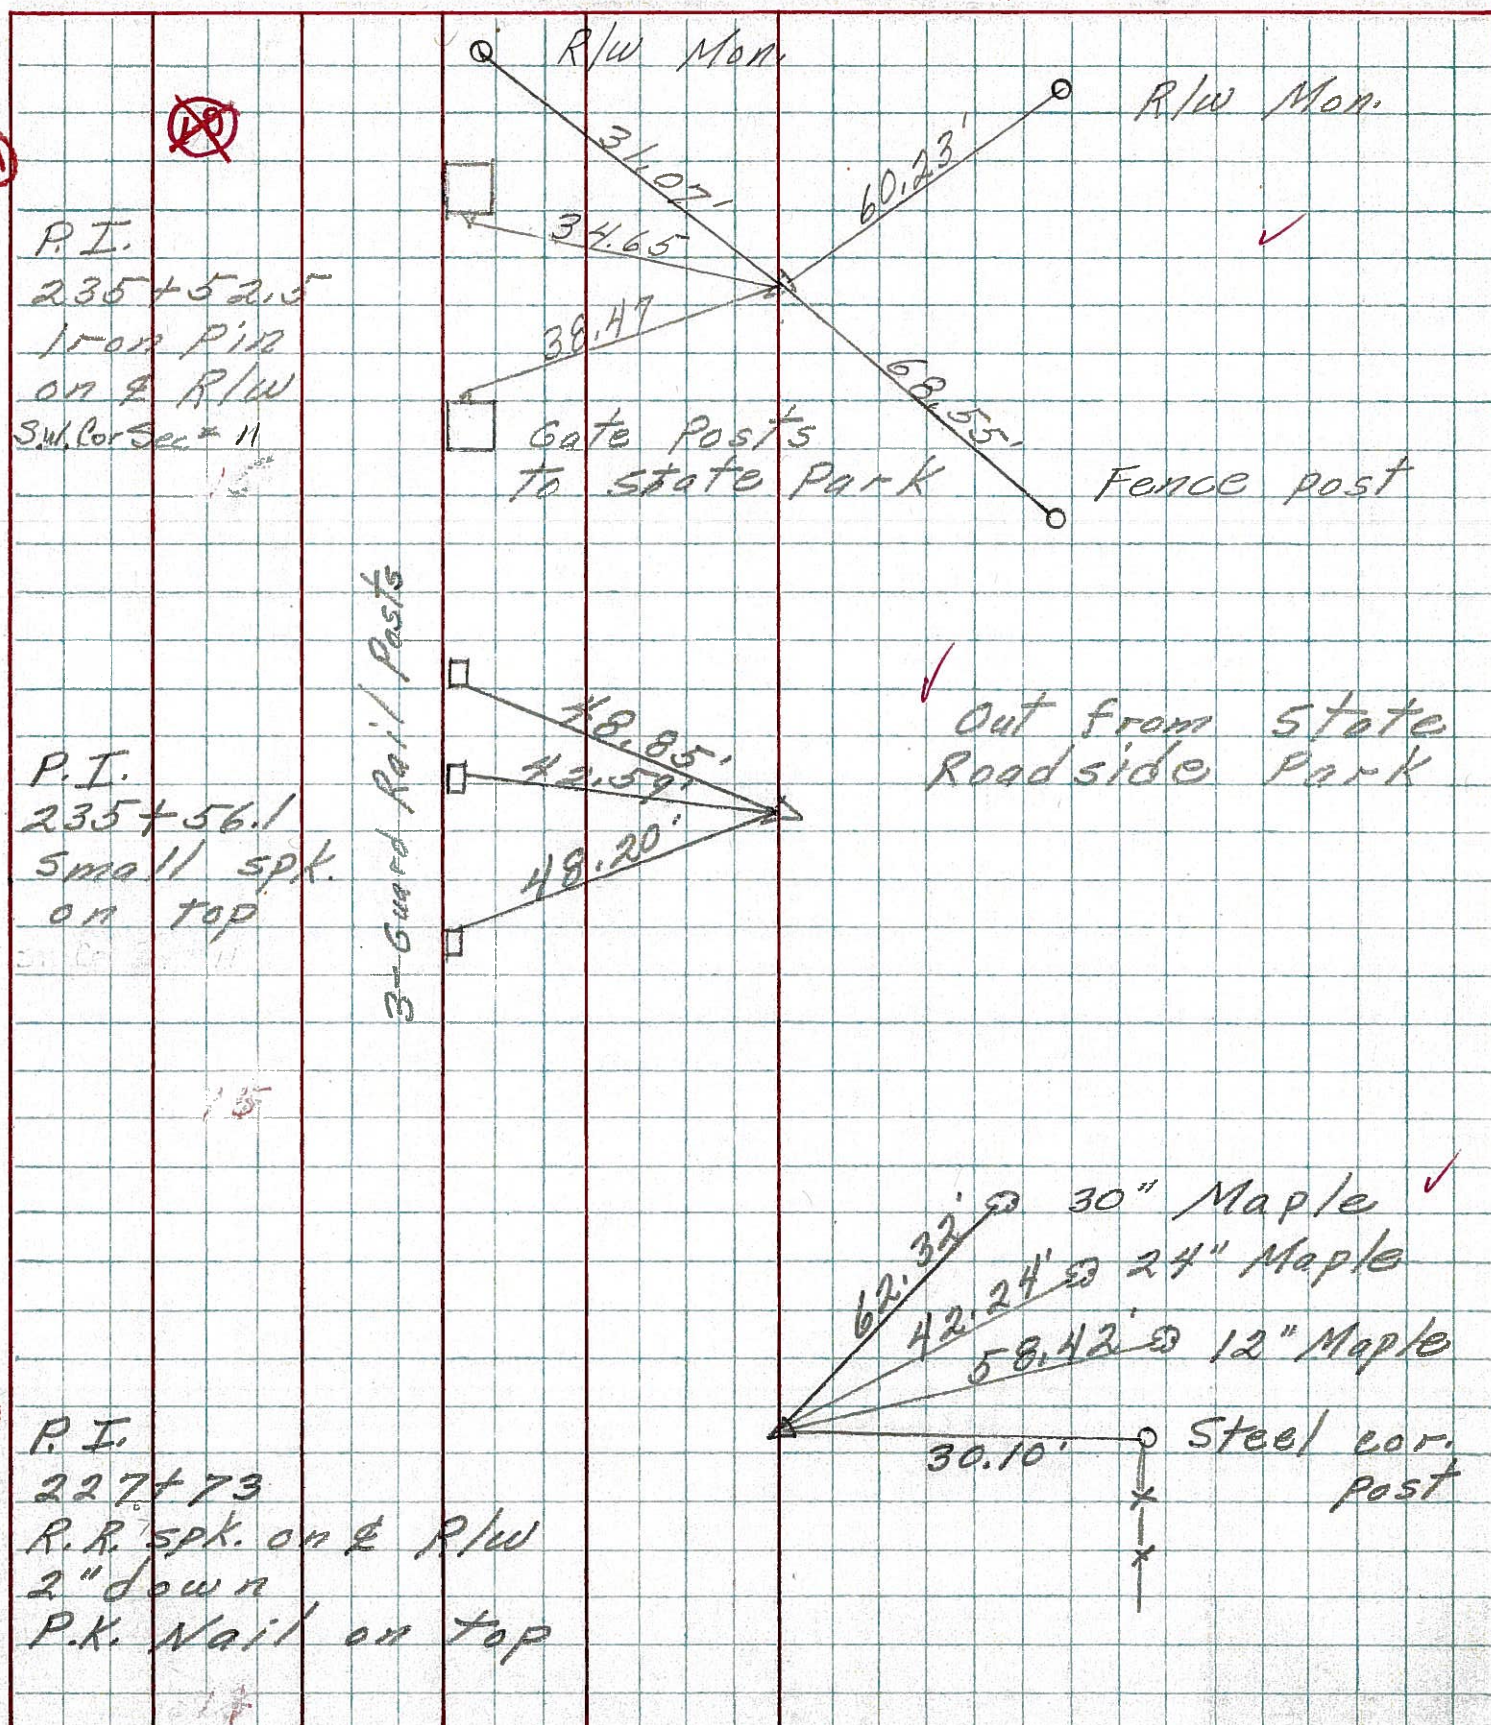 R/W Mon.
R/W Mon.
31.07'
60.23'
34.65
38.47
68.55'
P.I.
235+52.5
Iron Pin
on ℄ R/W
S.W. Cor Sec. 11
Gate Posts
To State Park
Fence post
3-Guard Rail Posts
48.85'
42.59'
48.20'
Out from State
Roadside Park
P.I.
235+56.1
small spk.
on top
15
62.32'
30" Maple
42.24'
24" Maple
58.42'
12" Maple
30.10'
Steel cor.
post
P.I.
227+73
R.R. spk. on ℄ R/W
2" down
P.K. Nail on top